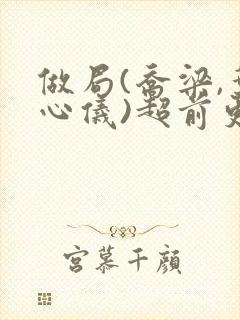 做局(喬梁,
心儀)超前
宮慕千顏